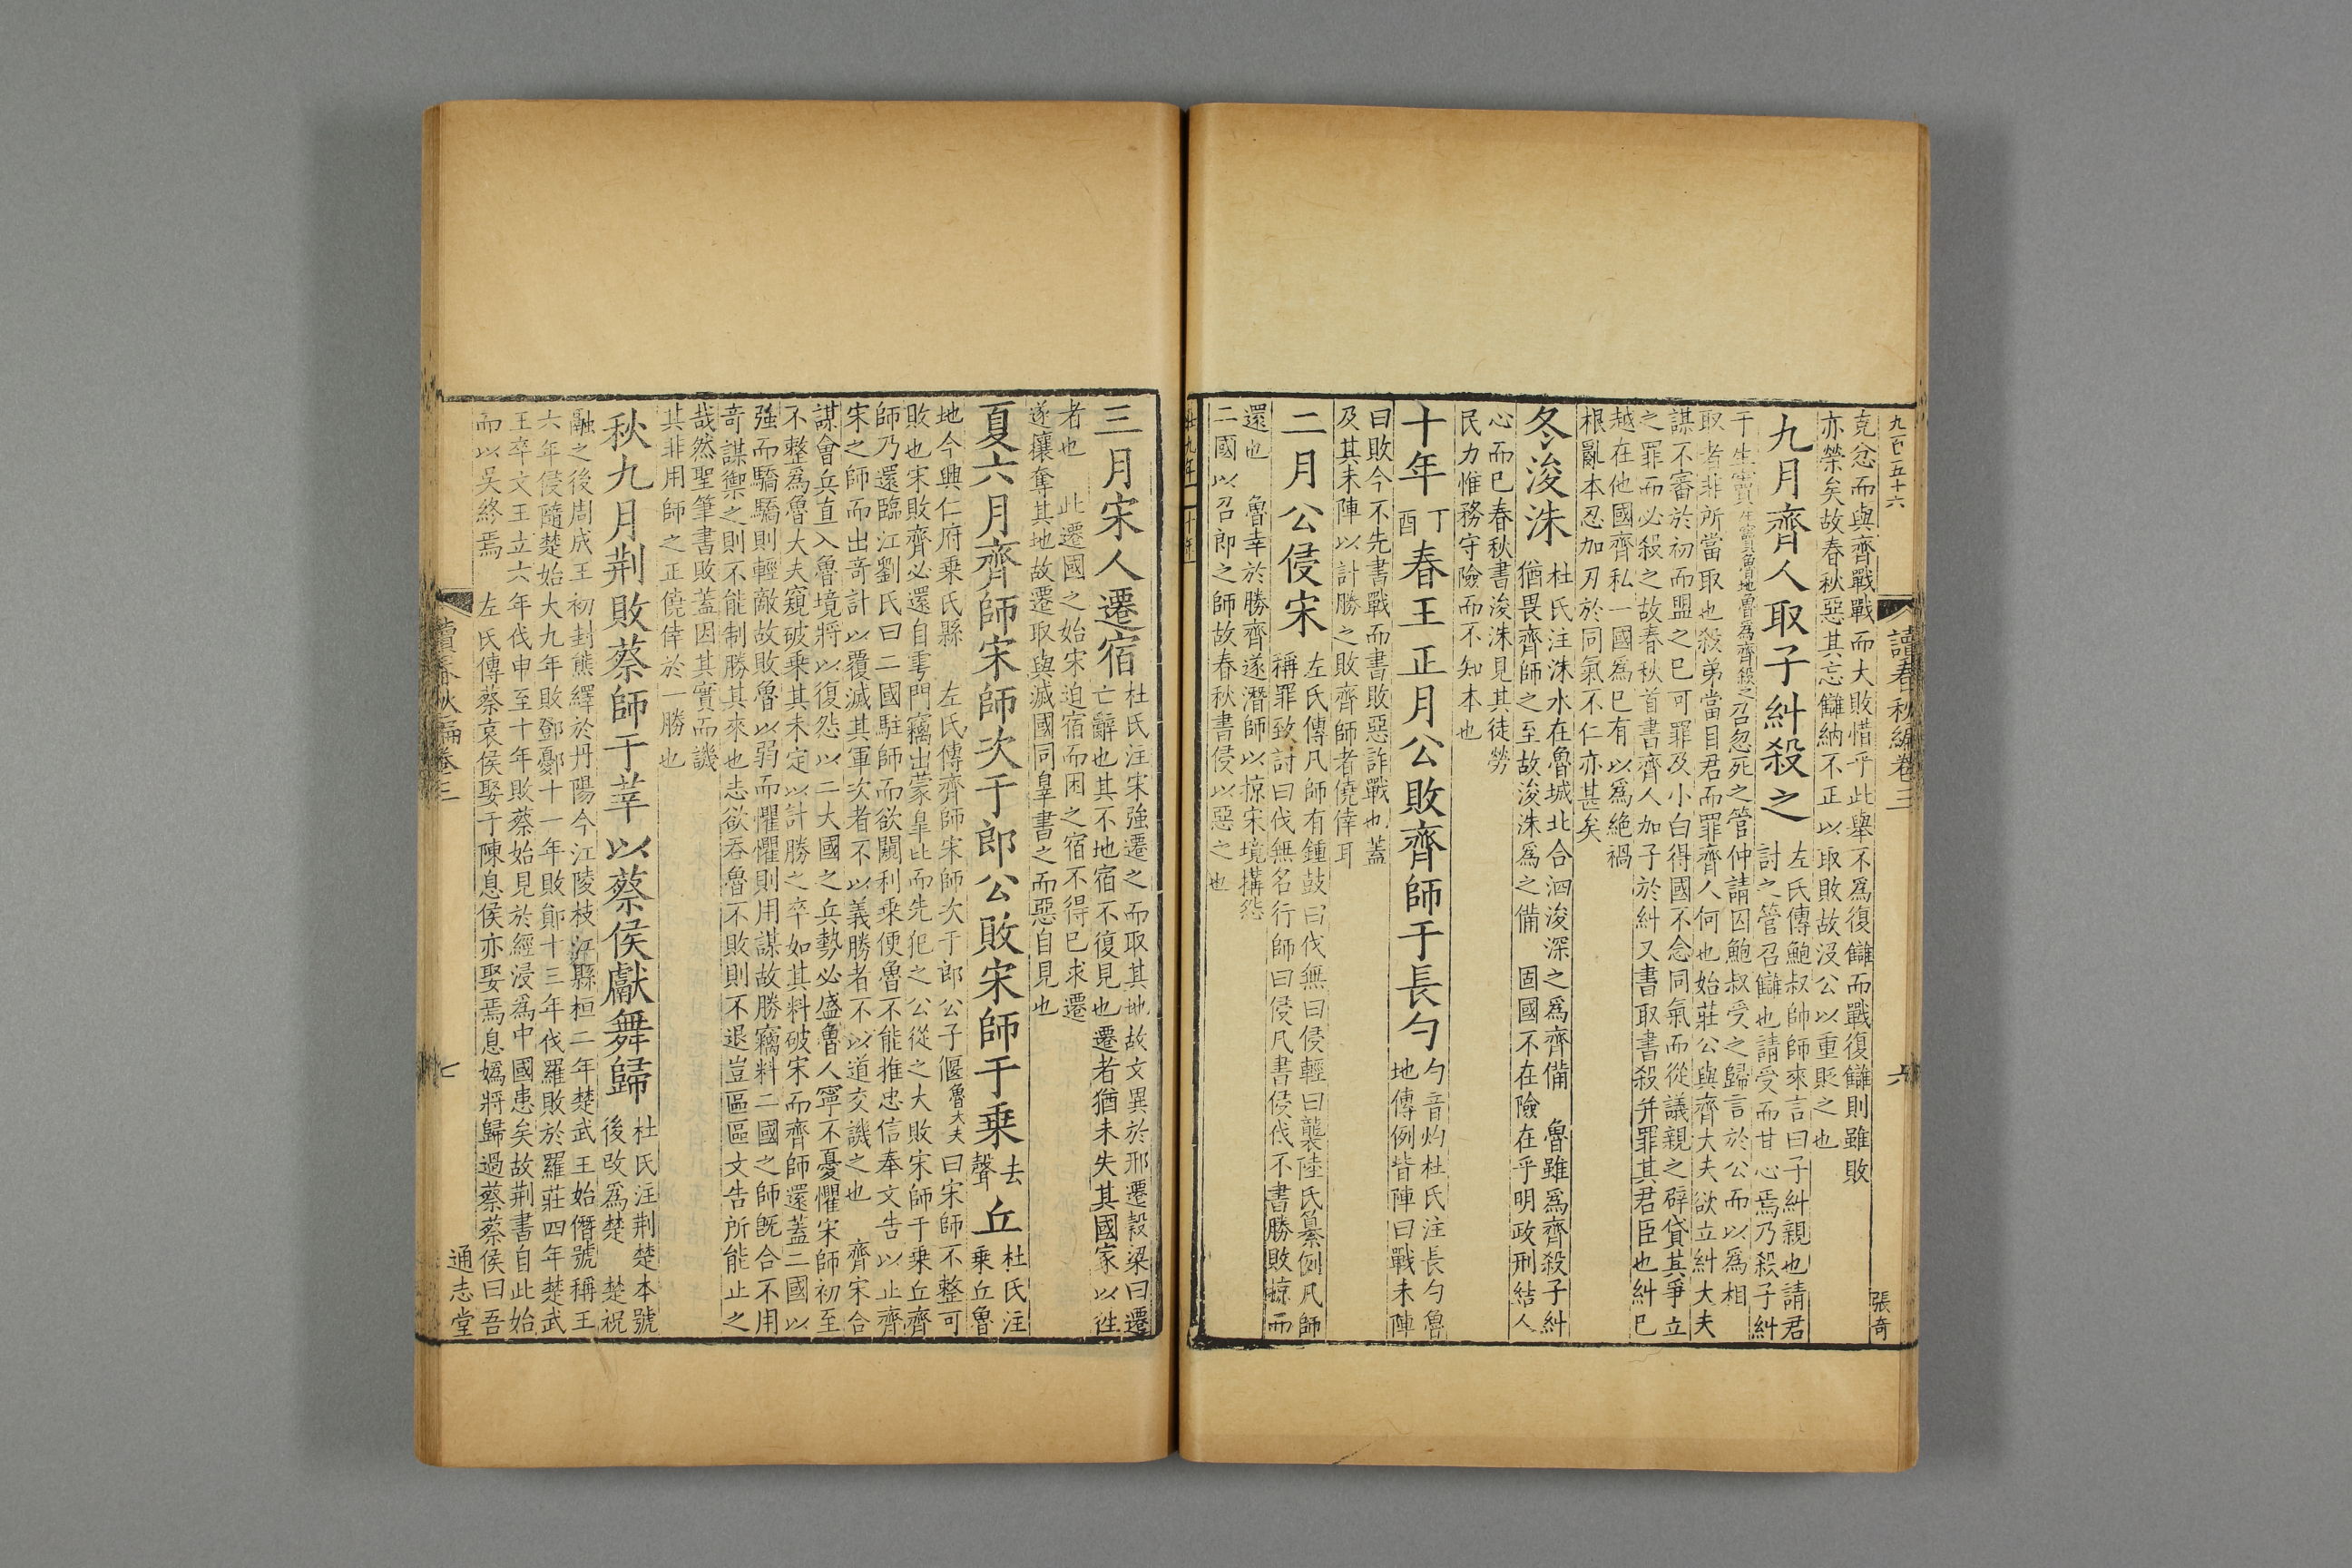 九百五十六
讀春秋編卷三
六
張奇
克忿而與齊戰戰而大敗惜乎此舉不爲復讎而戰復讎則雖敗
亦榮矣故春秋惡其忘讎納不正以取敗故沒公以重貶之也
九月齊人取子糾殺之
左氏傳鮑叔帥師來言曰子糾親也請君
討之管召讎也請受而甘心焉乃殺子糾
于生竇生竇魯地魯爲齊殺之召忽死之管仲請囚鮑叔受之歸言於公而以爲相
取者非所當取也殺弟當目君而罪齊人何也始莊公與齊大夫欲立糾大夫
謀不審於初而盟之已可罪及小白得國不念同氣而從議親之辟貸其爭立
之罪而必殺之故春秋首書齊人加子於糾又書取書殺并罪其君臣也糾已
越在他國齊私一國爲已有以爲絶禍
根亂本忍加刃於同氣不仁亦甚矣
冬浚洙
杜氏注洙水在魯城北合泗浚深之爲齊備 魯雖爲齊殺子糾
猶畏齊師之至故浚洙爲之備 固國不在險在乎明政刑結人
心而已春秋書浚洙見其徒勞
民力惟務守險而不知本也
十年丁酉春王正月公敗齊師于長勺
勺音灼杜氏注長勺魯
地傳例皆陣曰戰未陣
曰敗今不先書戰而書敗惡詐戰也蓋
及其未陣以計勝之敗齊師者僥倖耳
二月公侵宋
左氏傳凡師有鍾鼓曰伐無曰侵輕曰襲陸氏纂例凡師
稱罪致討曰伐無名行師曰侵凡書侵伐不書勝敗掠而
還也 魯幸於勝齊遂潛師以掠宋境搆怨
二國以召郎之師故春秋書侵以惡之也
莊九年 十年
三月宋人遷宿
杜氏注宋強遷之而取其地故文異於邢遷穀梁曰遷
亡辭也其不地宿不復見也遷者猶未失其國家以往
者也 此遷國之始宋迫宿而困之宿不得已求遷
遂攘奪其地故遷取與滅國同辠書之而惡自見也
夏六月齊師宋師次于郎公敗宋師于乘去聲丘
杜氏注
乘丘魯
地今興仁府乘氏縣 左氏傳齊師宋師次于郎公子偃魯大夫曰宋師不整可
敗也宋敗齊必還自雩門竊出蒙臯比而先犯之公從之大敗宋師于乘丘齊
師乃還臨江劉氏曰二國駐師而欲鬬利乘便魯不能推忠信奉文告以止齊
宋之師而出竒計以覆滅其軍次者不以義勝者不以道交譏之也 齊宋合
謀會兵直入魯境將以復怨以二大國之兵勢必盛魯人寧不憂懼宋師初至
不整爲魯大夫窺破乘其未定以計勝之卒如其料破宋而齊師還蓋二國以
强而驕驕則輕敵故敗魯以弱而懼懼則用謀故勝竊料二國之師旣合不用
竒謀禦之則不能制勝其來也志欲吞魯不敗則不退豈區區文告所能止之
哉然聖筆書敗蓋因其實而譏
其非用師之正僥倖於一勝也
秋九月荆敗蔡師于莘以蔡侯獻舞歸
杜氏注荆楚本號
後改爲楚 楚祝
融之後周成王初封熊繹於丹陽今江陵枝江縣桓二年楚武王始僭號稱王
六年侵隨楚始大九年敗鄧鄾十一年敗鄖十三年伐羅敗於羅莊四年楚武
王卒文王立六年伐申至十年敗蔡始見於經浸爲中國患矣故荆書自此始
而以吴終焉 左氏傳蔡哀侯娶于陳息侯亦娶焉息嬀將歸過蔡蔡侯曰吾
讀春秋編卷三
七
通志堂